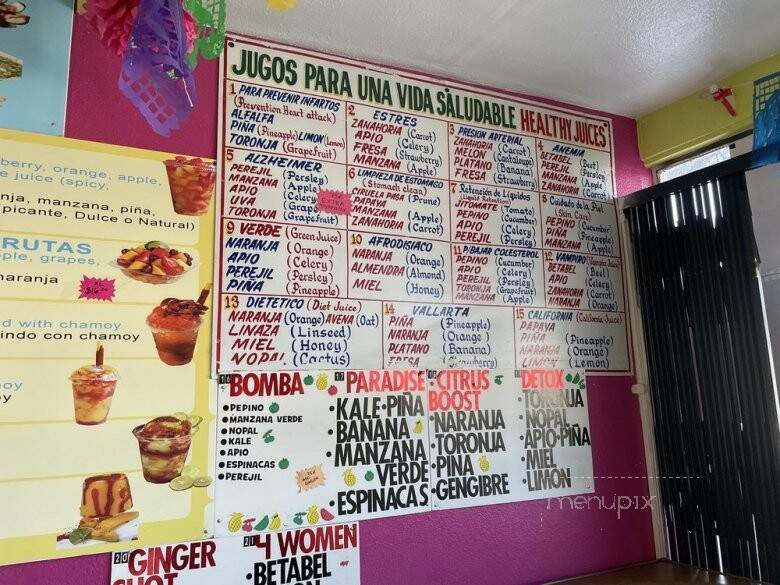 JUGOS PARA UNA VIDA SALUDABLE HEALTHY JUICES
1 PARA PREVENIR INFARTOS
(Prevention Heart attack)
ALFALFA
PIÑA (Pineapple) LIMON (Lemon)
TORONJA (GrapeFruit)
2 ESTRES
ZANAHORIA (Carrot)
APIO (Celery)
FRESA (Strawberry)
MANZANA (Apple)
3 PRESION ARTERIAL
ZANAHORIA (Carrot)
MELON (Cantaloupe)
PLATANO (Banana)
FRESA (Strawberry)
4 ANEMIA
BETABEL (Beet)
PEREJIL (Persley)
MANZANA (Apple)
ZANAHORIA (Carrot)
5 ALZHEIMER
PEREJIL (Persley)
MANZANA (Apple)
APIO (Celery)
UVA (Grape)
TORONJA (GrapeFruit)
6 LIMPIEZA DE ESTOMAGO
(Stomach clean)
CIRUELA PASA (Prune)
PAPAYA
MANZANA (Apple)
ZANAHORIA (Carrot)
EXTRA
7 Retención de Líquidos
(Liquid Retention)
JITOMATE (Tomato)
PEPINO (Cucumber)
APIO (Celery)
PEREJIL (Persley)
8 Cuidado de la Piel
Skin Care
PEPINO (Cucumber)
PIÑA (Pineapple)
MANZANA (Apple)
9 VERDE (Green Juice)
NARANJA (Orange)
APIO (Celery)
PEREJIL (Persley)
PIÑA (Pineapple)
10 AFRODISIACO
NARANJA (Orange)
ALMENDRA (Almond)
MIEL (Honey)
11 P/BAJAR COLESTEROL
PEPINO (Cucumber)
APIO (Celery)
PEREJIL (Persley)
TORONJA (GrapeFruit)
MANZANA (Apple)
12 VAMPIRO
BETABEL (Beet)
APIO (Celery)
ZANAHORIA (Carrot)
NARANJA (Orange)
13 DIETETICO (Diet Juice)
NARANJA (Orange) AVENA (Oat)
LINAZA (Linseed)
MIEL (Honey)
NOPAL (Cactus)
14 VALLARTA
PIÑA (Pineapple)
NARANJA (Orange)
PLATANO (Banana)
FRESA (Strawberry)
15 CALIFORNIA (California Juice)
PAPAYA
PIÑA (Pineapple)
NARANJA (Orange)
LIMON (Lemon)
BOMBA
• PEPINO
• MANZANA VERDE
• NOPAL
• KALE
• APIO
• ESPINACAS
• PEREJIL
17 PARADISE
• KALE•PIÑA
• BANANA
• MANZANA
VERDE
• ESPINACAS
CITRUS
BOOST
• NARANJA
• TORONJA
• PIÑA
• GENGIBRE
DETOX
• TORONJA
• NOPAL
• APIO•PIÑA
• MIEL
• LIMON
20 GINGER
SHOT
21 4 WOMEN
• BETABEL
berry, orange, apple,
e juice (spicy,
manzana, piña,
picante, Dulce o Natural)
FRUTAS
ple, grapes,
aranja
d with chamoy
indo con chamoy
moy
oy
menupix